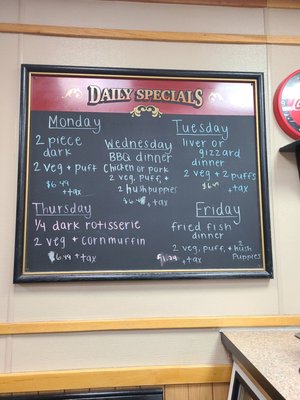 DAILY SPECIALS
Monday
2 piece
dark
2 veg + puff
$6.49
+tax
Wednesday
BBQ dinner
Chicken or pork
2 veg, puff, +
2 hushpuppies
+tax
Tuesday
liver or
gizzard
dinner
2 veg + 2 puffs
+tax
Thursday
1/4 dark rotisserie
2 veg + cornmuffin
$6.49 +tax
Friday
fried fish
dinner
2 veg, puff, + 2 hush
puppies
+tax